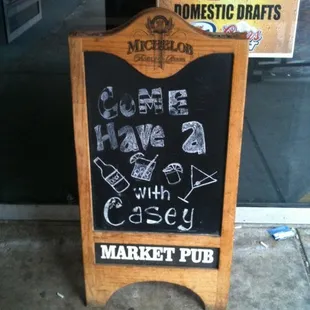 DOMESTIC DRAFTS
MICHELOB
COME
HAVE A
with
Casey
MARKET PUB